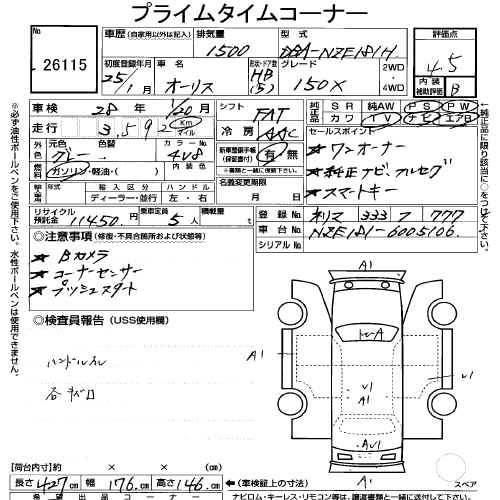 プライムタイムコーナー
No.
26115
車歴 (自家用以外は記入)
排気量
1500
型式
DBA-NZE181H
評価点
4.5
内装
補助評価
B
初度登録年月
25/1月
車名
オーリス
形状・ドア数
HB
(5)
グレード
150X
2WD
4WD
車検
28年 1/20月
シフト
FAT
純正品
SR 純AW PS PW
カワ TV ナビ エアB
走行
3,592
km
マイル
冷房
AAC
外色
元色
グレー
色替
カラーNo.
4V8
内装色
新車整備手帳
(保証書付)
有・無
セールスポイント
★ワンオーナー
★純正ナビ、フルセグ
★スマートキー
燃料
ガソリン・軽油・( )
★書類と一緒に保管下さい
輸入車
年式
輸入区分
ディーラー・並行
ハンドル
左・右
名義変更期限
月 日
リサイクル
預託金
11450円
乗車定員
5人
積載量
t
登録No.
ネリマ 333 フ 777
車台No.
NZE181-6005106
シリアルNo.
◎注意事項 (修復・不具合箇所および状態等)
★Bカメラ
★コーナーセンサー
★プッシュスタート
◎検査員報告 (USS使用欄)
ハンドルスレ
各キズ
A1
A
A1
U1
A1
U1
AU1
A1
スペア
【荷台内寸】約 × × (cm)
長さ 427 幅 176 高さ 146 (cm)
←(車検証上の寸法)
出品コーナー
ナビロム・キーレス・リモコン等は、譲渡書類と一緒に送付して下さい。
※必ず油性ボールペンをご使用下さい。水性ボールペンは使用できません。
←純正品に限り○をつけて下さい